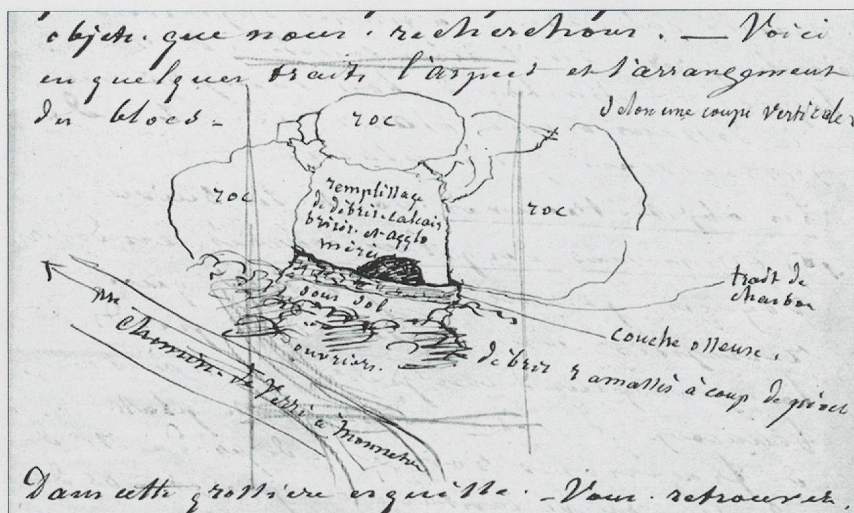 objets que nous recherchons. — Voici
en quelques traits l'aspect et l'arrangement
des blocs -
selon une coupe verticale
roc
roc
roc
remplissage
de débris calcair
brisés et agglo
mérés
sous sol
ouvriers.
trait de
charbon
couche osseuse.
débris ramassés à coup de
Chemin de Veyri à Monnetier
Dans cette grossière esquisse. - Vous retrouvez